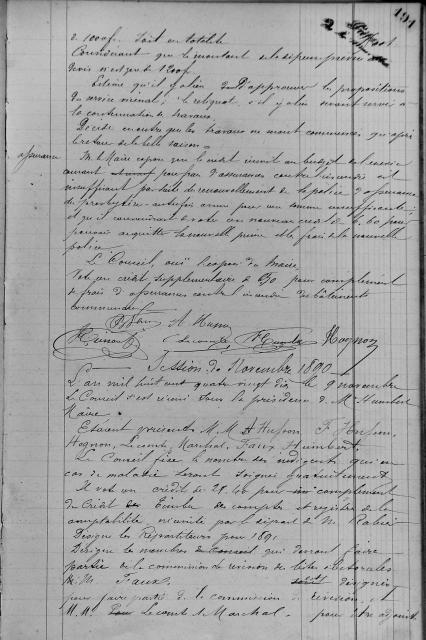 191
de 1000f. soit en totalité
Considérant que le montant de la dépense prévue au
devis n'est que de 1200f
Estime qu'il y a lieu d'approuver les propositions
du service vicinal; le reliquat, s'il y a lieu devant servir à
la continuation des travaux
Décide en outre que les travaux ne seront commencés qu'après
le retour de la belle saison
assurance
M. le Maire expose que le crédit inscrit au budget de l'exercice
courant pour frais d'assurances contre l'incendie est
insuffisant par suite du renouvellement de la police d'assurance
du presbytère autrefois assuré pour une somme insuffisante;
et qu'il conviendrait de voter un nouveau crédit de 6.60 pour
pouvoir acquitter la nouvelle prime et les frais de la nouvelle
police
Le Conseil, ouï l'exposé du Maire
Vote un crédit supplémentaire de pour complément
de frais d'assurances contre l'incendie des bâtiments
communaux
A Husson
Lecomte Hognon
Session de Novembre 1890
L'an mil huit cent quatre vingt dix le 9 novembre
Le Conseil s'est réuni sous la présidence de M. Humbert
Maire
Etaient présents M.M. A Husson, F. Husson,
Hognon, Lecomte, Marchal, Faux, Humbert.
Le Conseil fixe le nombre des indigents qui en
cas de maladie seront soignés gratuitement
Il vote un crédit de 28.40 pour complément
de crédit des Timbres de comptes et registres de la
comptabilité nécessité par le départ de M.
Désigne les Répartiteurs pour 1891
Désigne les membres du Conseil qui devront faire
partie de la commission de révision des listes électorales
M. Faux. désigné
pour faire partie de la commission de révision, et
M.M. Lecomte & Marchal. pour être adjoints